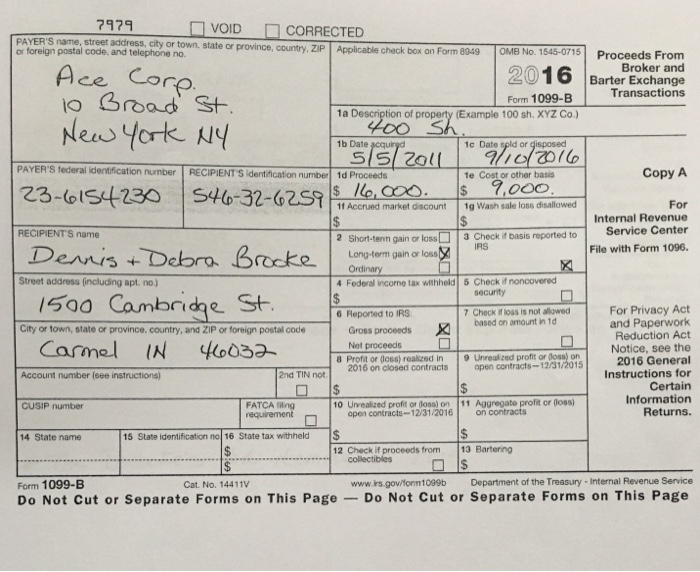 7979 VOID CORRECTED
PAYER'S name, street address, city or town, state or province, country, ZIP
or foreign postal code, and telephone no.
Ace Corp.
10 Broad St.
New York NY
Applicable check box on Form 8949
OMB No. 1545-0715
2016
Form 1099-B
Proceeds From
Broker and
Barter Exchange
Transactions
1a Description of property (Example 100 sh. XYZ Co.)
400 Sh.
1b Date acquired
5/5/2011
1c Date sold or disposed
9/10/2016
PAYER'S federal identification number
23-6154230
RECIPIENT'S identification number
546-32-6259
1d Proceeds
$ 16,000.
1e Cost or other basis
$ 9,000.
1f Accrued market discount
$
1g Wash sale loss disallowed
$
Copy A
For
Internal Revenue
Service Center
File with Form 1096.
RECIPIENT'S name
Dennis + Debra Brocke
2 Short-term gain or loss
Long-term gain or loss X
Ordinary
3 Check if basis reported to
IRS X
Street address (including apt. no.)
1500 Cambridge St.
4 Federal income tax withheld
$
5 Check if noncovered
security
City or town, state or province, country, and ZIP or foreign postal code
Carmel IN 46032
6 Reported to IRS:
Gross proceeds X
Net proceeds
7 Check if loss is not allowed
based on amount in 1d
For Privacy Act
and Paperwork
Reduction Act
Notice, see the
2016 General
Instructions for
Certain
Information
Returns.
Account number (see instructions)
2nd TIN not.
8 Profit or (loss) realized in
2016 on closed contracts
$
9 Unrealized profit or (loss) on
open contracts—12/31/2015
$
CUSIP number
FATCA filing
requirement
10 Unrealized profit or (loss) on
open contracts—12/31/2016
$
11 Aggregate profit or (loss)
on contracts
$
14 State name
15 State identification no
16 State tax withheld
$
$
12 Check if proceeds from
collectibles
13 Bartering
$
Form 1099-B Cat. No. 14411V www.irs.gov/form1099b Department of the Treasury - Internal Revenue Service
Do Not Cut or Separate Forms on This Page — Do Not Cut or Separate Forms on This Page